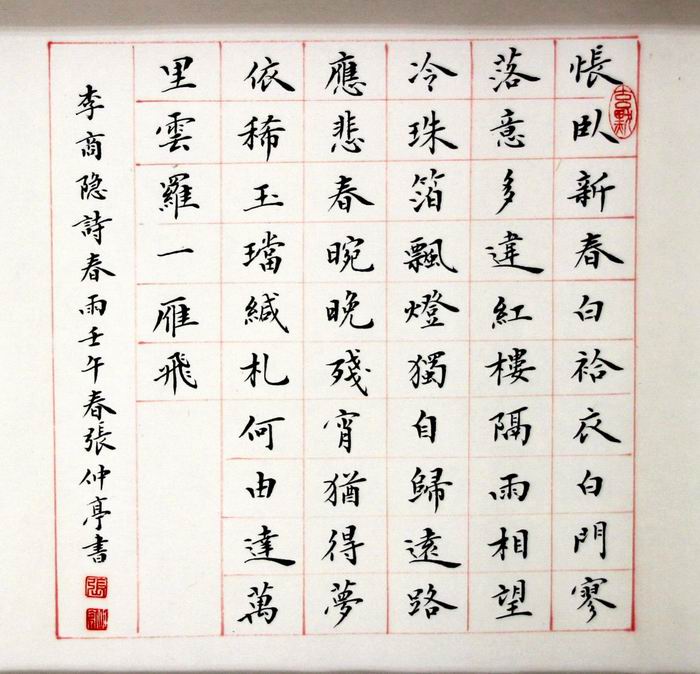 悵臥新春白袷衣白門寥
落意多違紅樓隔雨相望
冷珠箔飄燈獨自歸遠路
應悲春晼晚殘宵猶得夢
依稀玉璫緘札何由達萬
里雲羅一雁飛
李商隐詩春雨壬午春張仲亭書